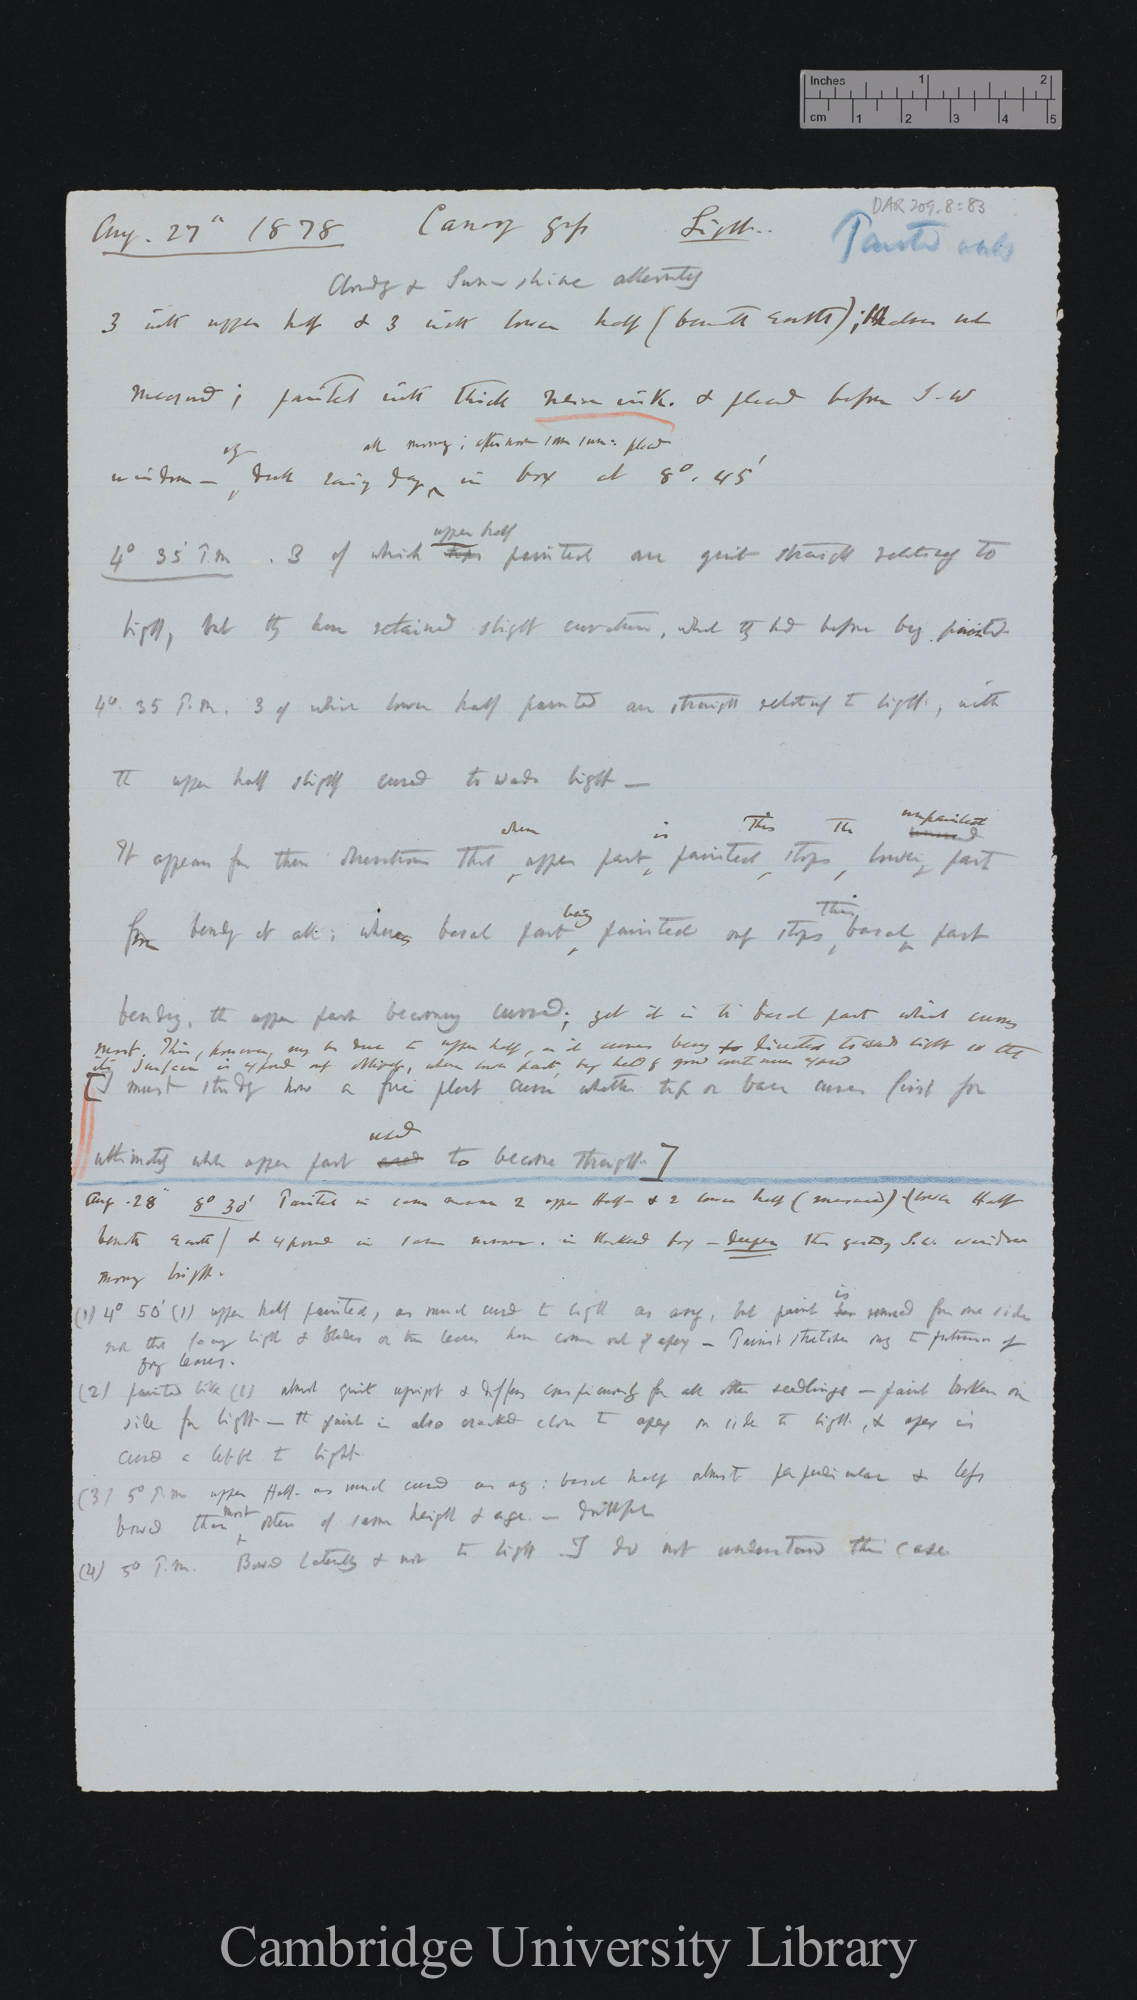 Inches 1 2
cm 1 2 3 4 5
DAR 209.8:83
Aug. 27th 1878 Canary grass Light..
Painted
Cloudy & Sun-shine alternately
3 with upper half & 3 with lower half (beneath earth);
measured; painted with thick ink. & placed before S-W
window — dark rainy day in box at 8°. 45'
all morning; afternoon some sun: placed
upper half
4° 35' P.m. 3 of which tips painted are quite straight relatively to
light, but they have retained slight curvature, which they had before being painted
4°. 35 P.m. 3 of which lower half painted are straight relatively to light, with
the upper half slightly curved towards light —
when is This the unpainted
It appears from these observations that upper part painted, stops, lower part
being this
from bending at all: whereas basal part painted only stops basal part
bending, the upper part becoming curved; yet it is the basal part which curves
most. This, however, may be due to upper half, as it curves being directed towards light so that
its surface is exposed only obliquely, when lower part, being held good continues exposed
[I must study how a free plant curves whether tip or base curves first for
used
ultimately while upper part used to become straight.]
Aug. 28th 8° 30' Painted in same manner 2 upper Half & 2 lower half (measured) (lower Half
beneath earth) & exposed in same manner. in blackened box — deeper than yesterday S.W. window
morning bright.
is
(1) 4° 50' (1) upper half painted, as much curved to light as any, but paint has removed from one side
not that facing light & blades or true leaves have come out of apex — Paint stretches owing to protrusion of
leaves.
(2) painted like (1) almost quite upright & differs conspicuously from all other seedlings — paint broken on
side from light — the paint is also cracked close to apex on side to light, & apex is
curved a little to light
(3) 5° P.m upper Half as much curved as any: basal half almost perpendicular & less
bowed than most others of same height & age — doubtful
(4) 5° P.m. Bowed laterally & not to light. I do not understand this case
Cambridge University Library